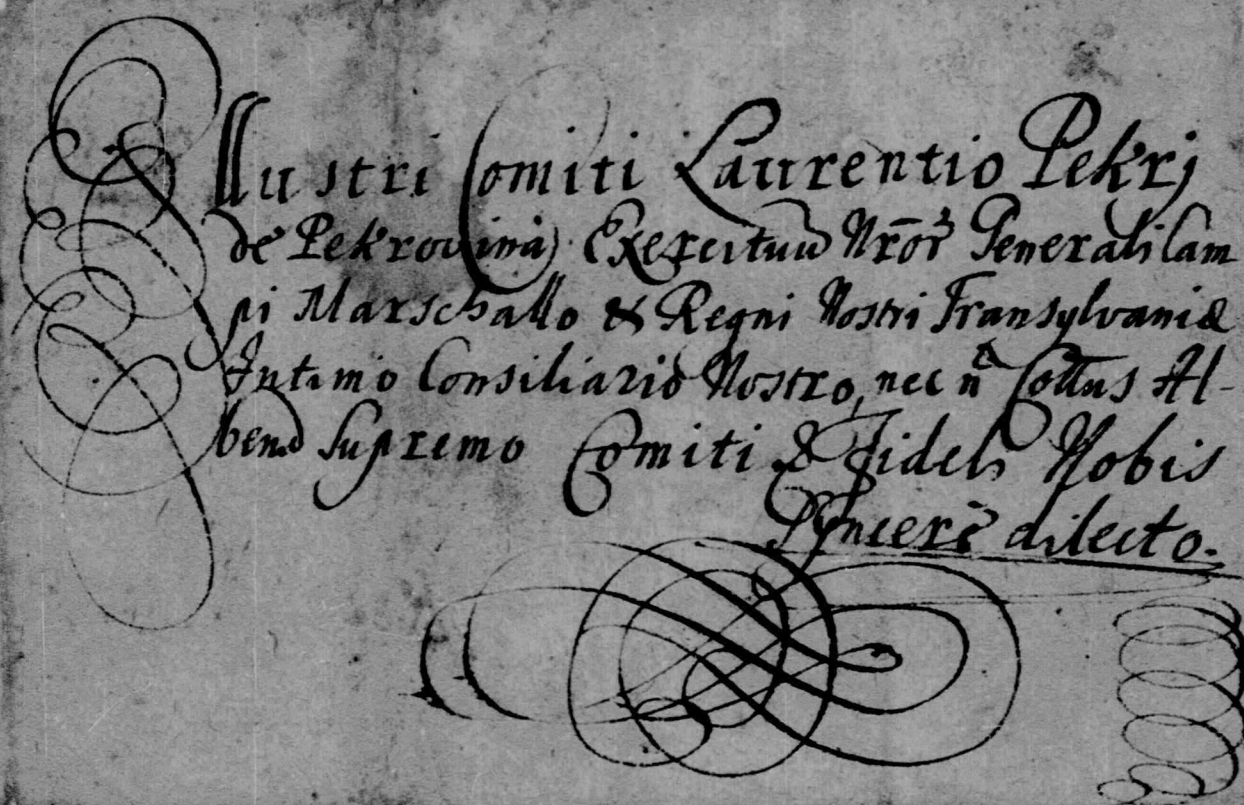 Illustri Comiti Laurentio Pekrj
de Pekrovina Exercituũ Nrõr Generali Cam
pi Marschallo & Regni Nostri Transylvaniæ
Intimo Consiliario Nostro, nec n Cottus Al-
bens Supremo Comiti & Fideli Nobis
Syncerè dilecto.